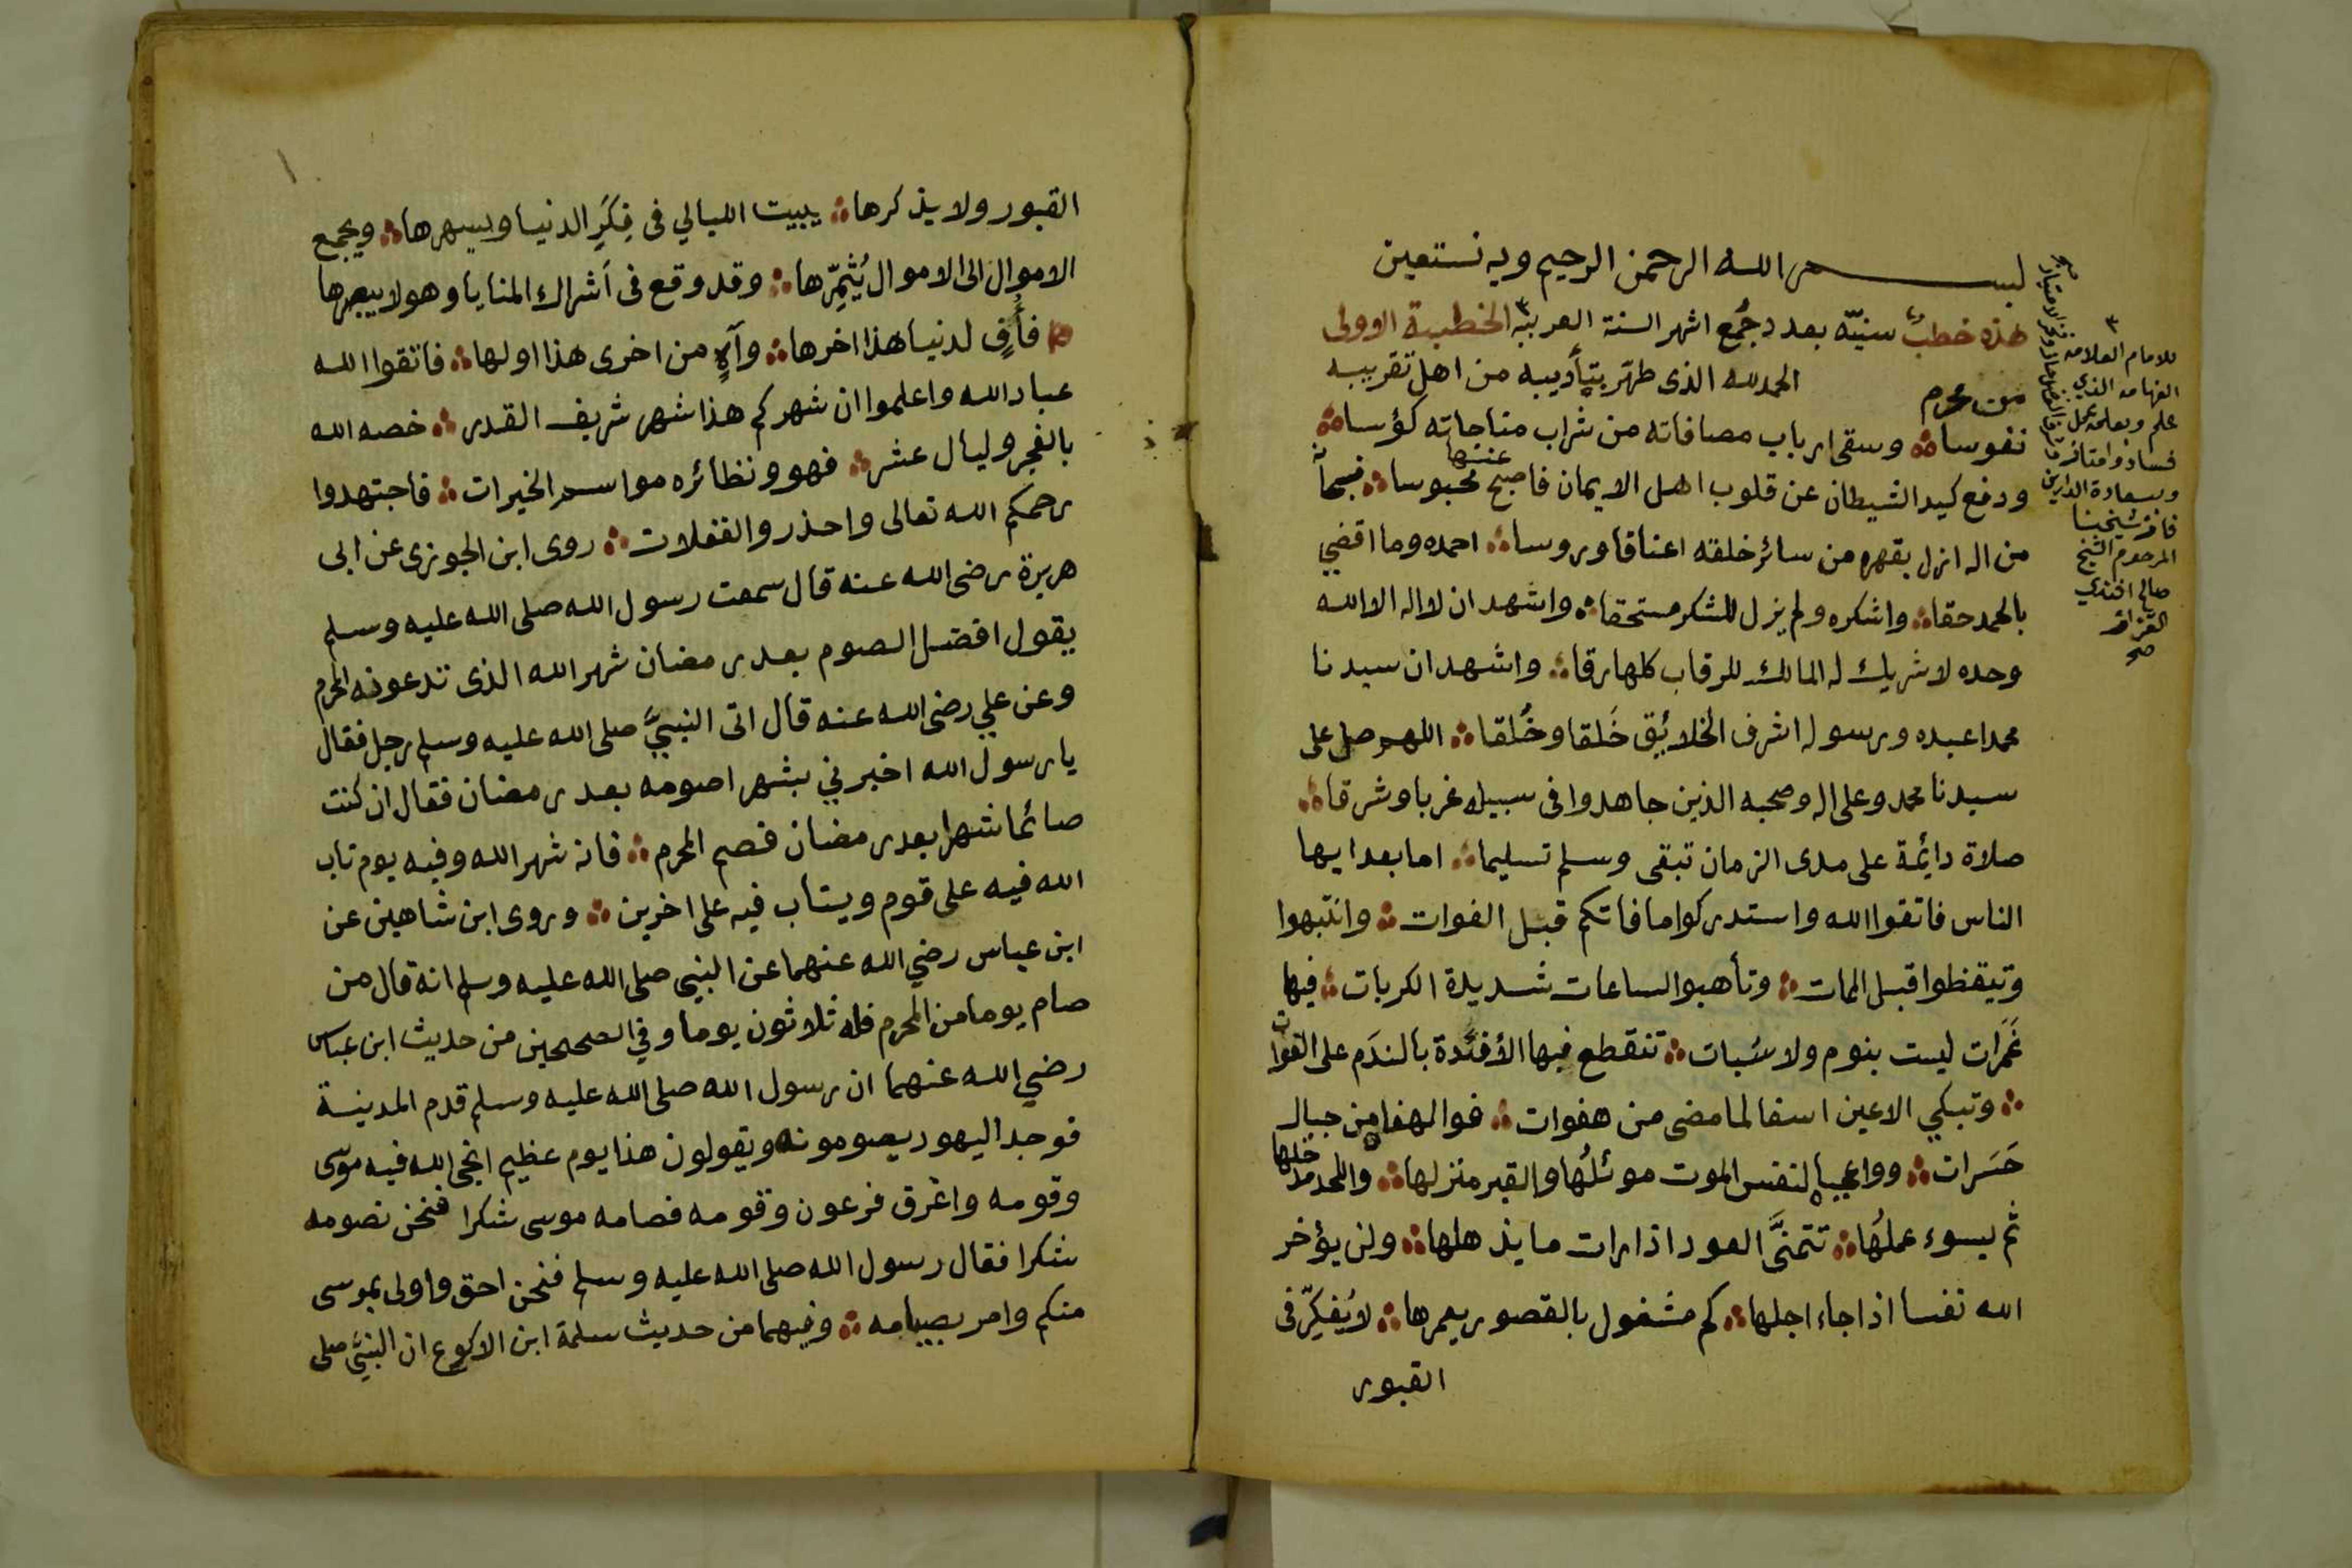 بسم الله الرحمن الرحيم وبه نستعين
هذه خطب سنيّه بعدد جُمع اشهر السنة العربيه الخطبة الاولى
من محرم الحمد لله الذى طهّر بتأديبه من اهل تقريبه
نفوسا وسقى ارباب مصافاته من شراب مناجاته كؤسا
ودفع كيد الشيطان عن قلوب اهل الايمان فاصبح عنها محبوسا فسبحا
من اله ازل بقهره من سائر خلقه اعناقا وروسا احمده وما اقضي
بالحمد حقا واشكره ولم يزل للشكر مستحقا واشهد ان لا اله الا الله
وحده لا شريك له المالك للرقاب كلها رقا واشهد ان سيدنا
محمدا عبده ورسوله اشرف الخلائِق خَلقا وخُلقا اللهم صل على
سيدنا محمد وعلى اله وصحبه الذين جاهدوا فى سبيله غربا وشرقا
صلاة دائمة على مدى الزمان تبقى وسلم تسليما اما بعد ايها
الناس فاتقوا الله واستدركوا ما فاتكم قبل الفوات وانتبهوا
وتيقظوا قبل الممات وتأهبوا لساعات شديدة الكربات فيها
غَمَرات ليست بنوم ولا سُبات تنقطع فيها الأفئدة بالندَم على الفوات
وتبكي الاعين اسفا لما مضى من هفوات فوالهفا من جبال
حَسَرات وواعجبا لنفس الموت موئلُها والقبر منزلها واللحد مدخلها
ثم يسوء عملُها تتمنَّى العود اذا رات ما يذهلها ولن يؤخر
الله نفسا اذا جاء اجلها كم مشغول بالقصور يعمرها لا يُفكِّر فى
القبور
للامام العلامه
الفهامه الذي
علم وبعلمه عمل
فساد وامتاز
وبسعادة الدارين
فاز شيخنا
المرحوم الشيخ
صالح افندي
القزاز
صح
القبور ولا يذكرها يبيت الليالي فى فِكَرِ الدنيا ويسهرها ويجمع
الاموال الى الاموال يُثمِّرها وقد وقع فى أشراك المنايا وهو لا يبصرها
فأُفٍ لدنيا هذا اخرها وآهٍ من اخرى هذا اولها فاتقوا الله
عباد الله واعلموا ان شهركم هذا شهر شريف القدر خصه الله
بالفجر وليال عشر فهو ونظائره مواسم الخيرات فاجتهدوا
رحمكم الله تعالى واحذروا الغفلات روى ابن الجوزى عن ابى
هريرة رضى الله عنه قال سمعت رسول الله صلى الله عليه وسلم
يقول افضل الصوم بعد رمضان شهر الله الذى تدعونه المحرم
وعن علي رضى الله عنه قال اتى النبيَّ صلى الله عليه وسلم رجل فقال
يا رسول الله اخبرني بشهر اصومه بعد رمضان فقال ان كنت
صائما شهرا بعد رمضان فصم المحرم فانه شهر الله وفيه يوم تاب
الله فيه على قوم ويتاب فيه على اخرين وروى ابن شاهين عن
ابن عباس رضي الله عنهما عن النبي صلى الله عليه وسلم انه قال من
صام يوما من المحرم فله ثلاثون يوما وفي الصحيحين من حديث ابن عباس
رضي الله عنهما ان رسول الله صلى الله عليه وسلم قدم المدينة
فوجد اليهود يصومونه ويقولون هذا يوم عظيم انجى الله فيه موسى
وقومه واغرق فرعون وقومه فصامه موسى شكرا فنحن نصومه
شكرا فقال رسول الله صلى الله عليه وسلم فنحن احق واولى بموسى
منكم وامر بصيامه وفيهما من حديث سلمة ابن الاكوع ان النبيَّ صلى